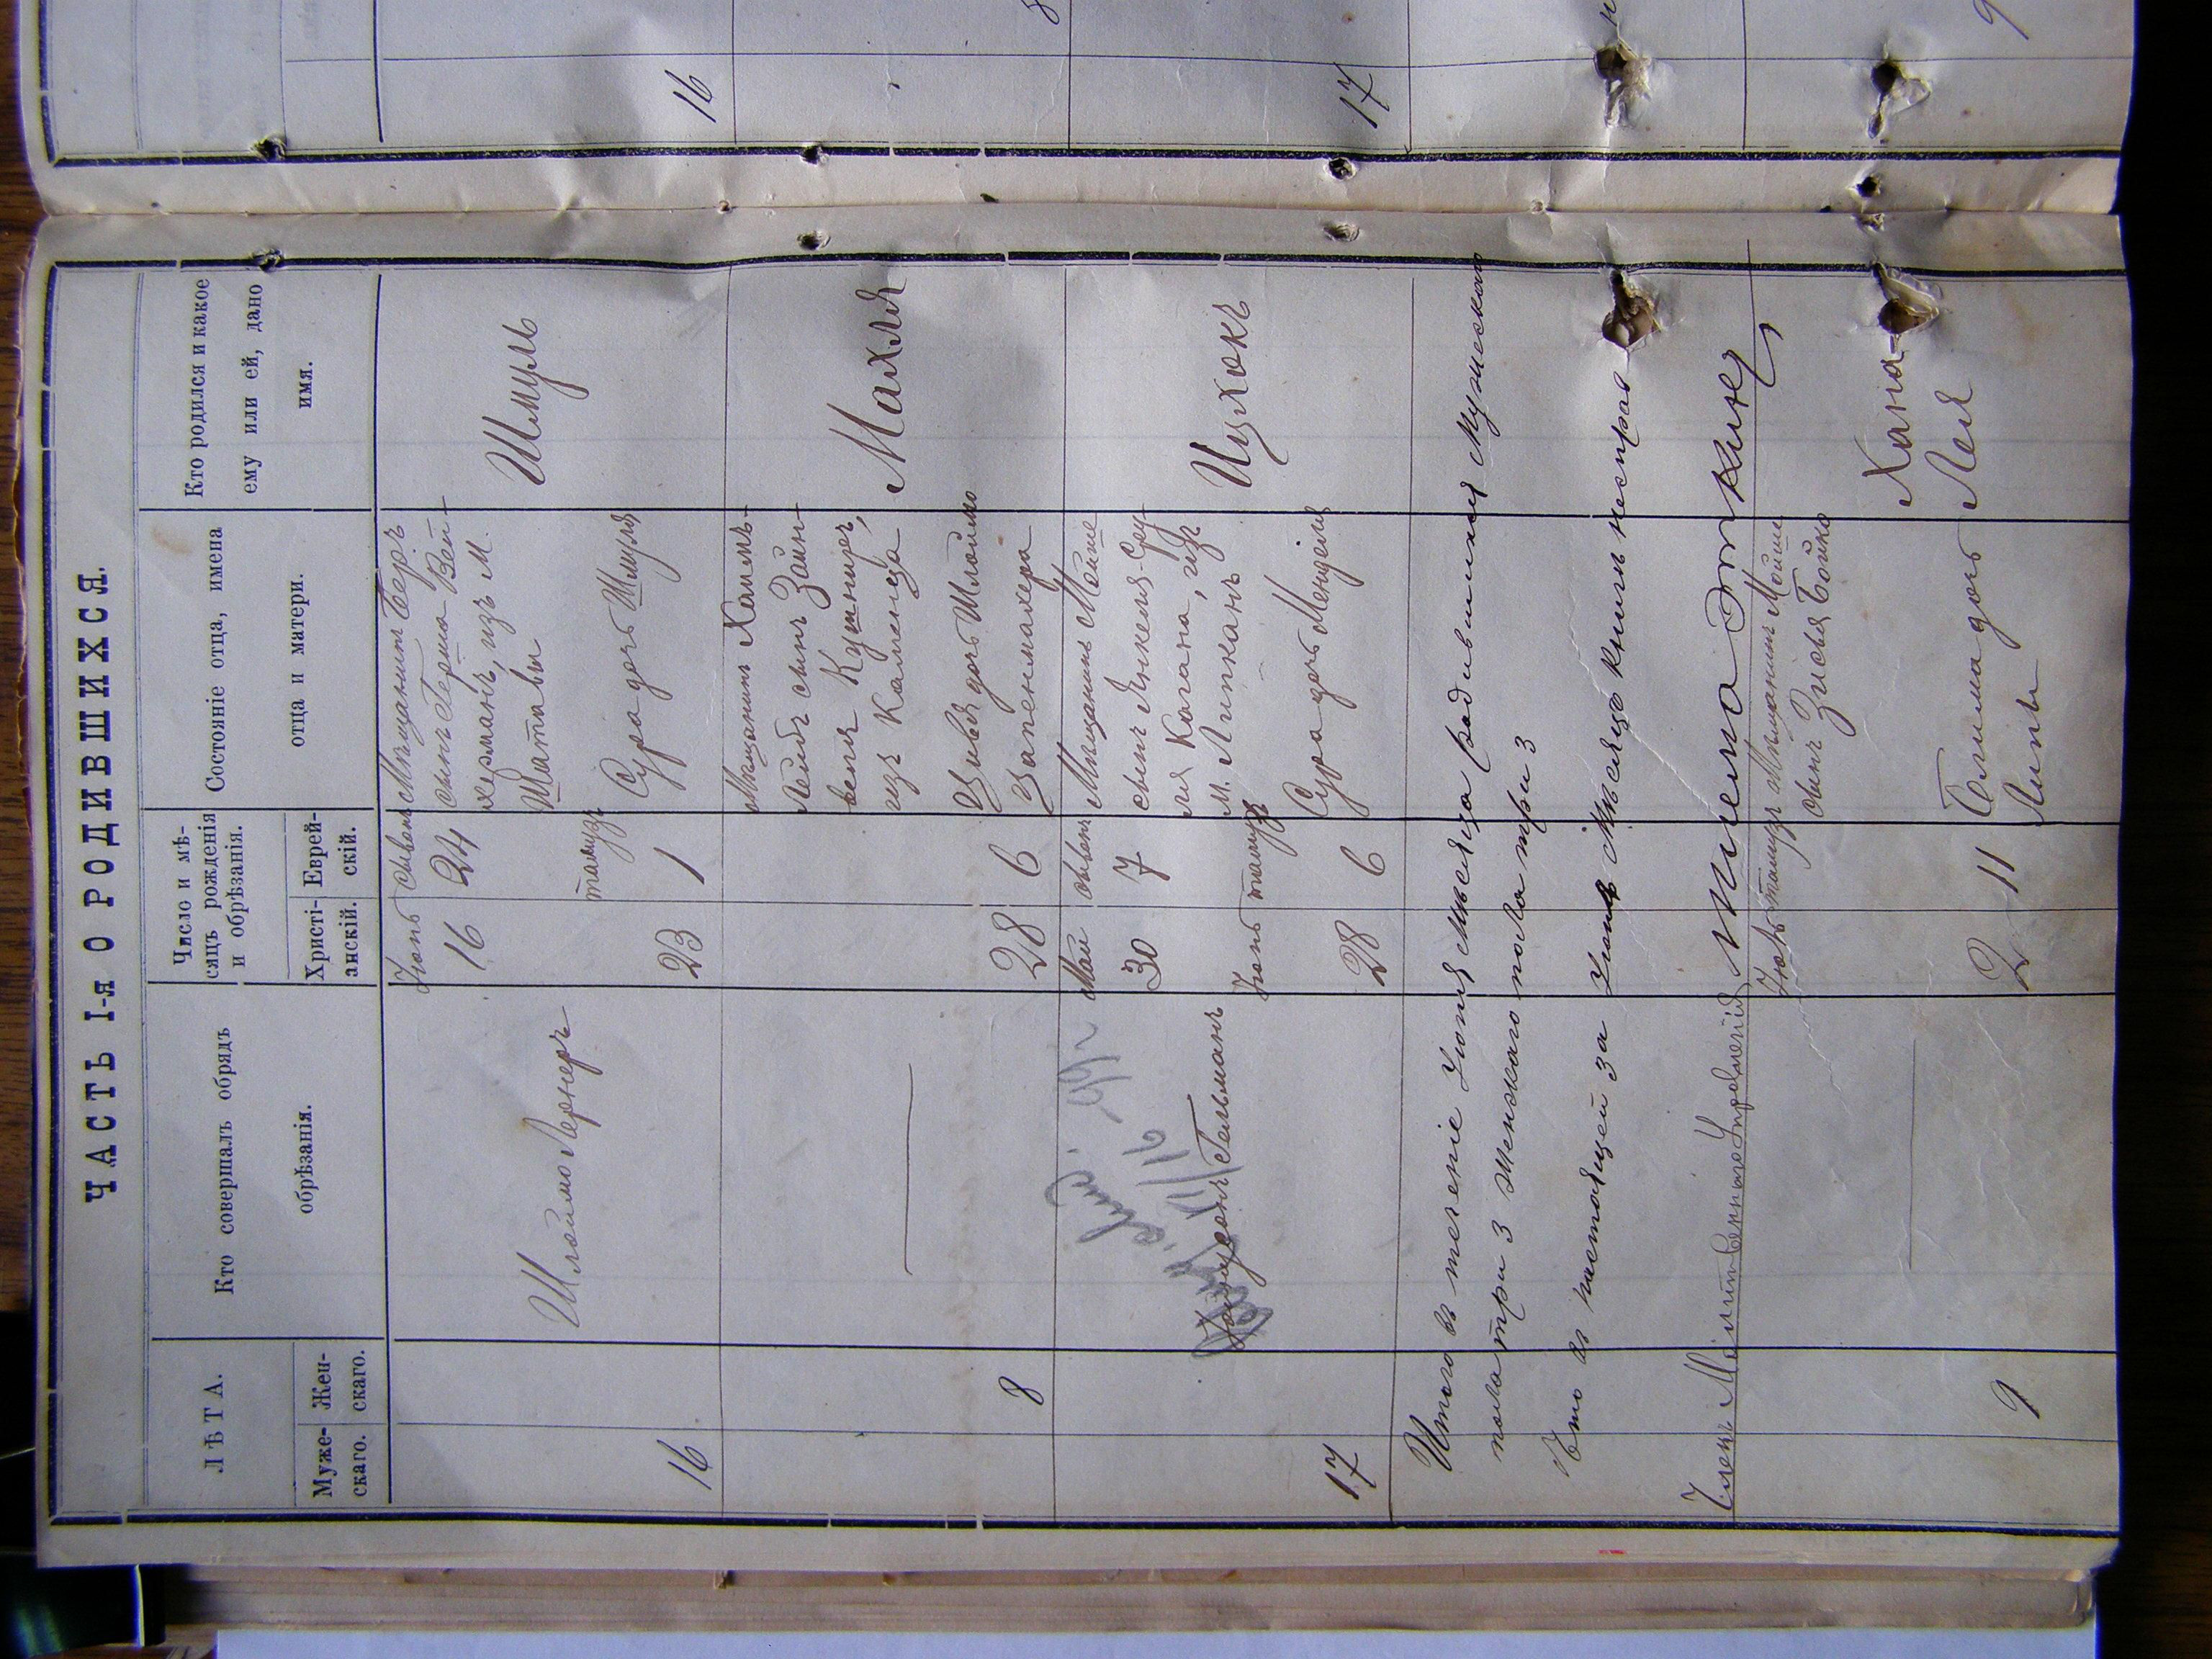 ЧАСТЬ I-я О РОДИВШИХСЯ.
ЛѢТА.
Муже-
скаго.
Жен-
скаго.
Кто совершалъ обрядъ
обрѣзанія.
Число и мѣ-
сяцъ рожденія
и обрѣзанія.
Христі-
анскій.
Еврей-
скій.
Состояніе отца, имена
отца и матери.
Кто родился и какое
ему или ей, дано
имя.
16
Шлоймо Лернеръ
Іюнь
16
23
сивонъ
24
тамузъ
1
Мѣщанинъ Беръ
сынъ Герша Вай-
херманъ, изъ м.
Шатавы
Сура дочь Шмуля
Шмуль
8
28
6
Мѣщанинъ Хаимъ-
Лейбъ сынъ Зайн-
веля Кушниръ,
изъ Каменца
Цивья дочь Шлоймо
Цапенмахера
Махля
17
Гельманъ
Май
30
Іюнь
28
сивонъ
7
тамузъ
6
Мѣщанинъ Мойше
сынъ Янкеля-Сру-
ля Когана, изъ
м. Липканъ
Сура дочь Менделя
Ицхокъ
Итого въ теченіе Іюня мѣсяца родившихся мужескаго
пола три 3 женскаго пола три 3
Что въ настоящей за Іюнь мѣсяцъ книги
Членъ Молитвеннаго Управленія
9
Іюль
2
тамузъ
11
Мѣщанинъ Мойше
сынъ Зисья Бойко
Блима дочь
Липы
Хана-
Лея
16
8
17
9